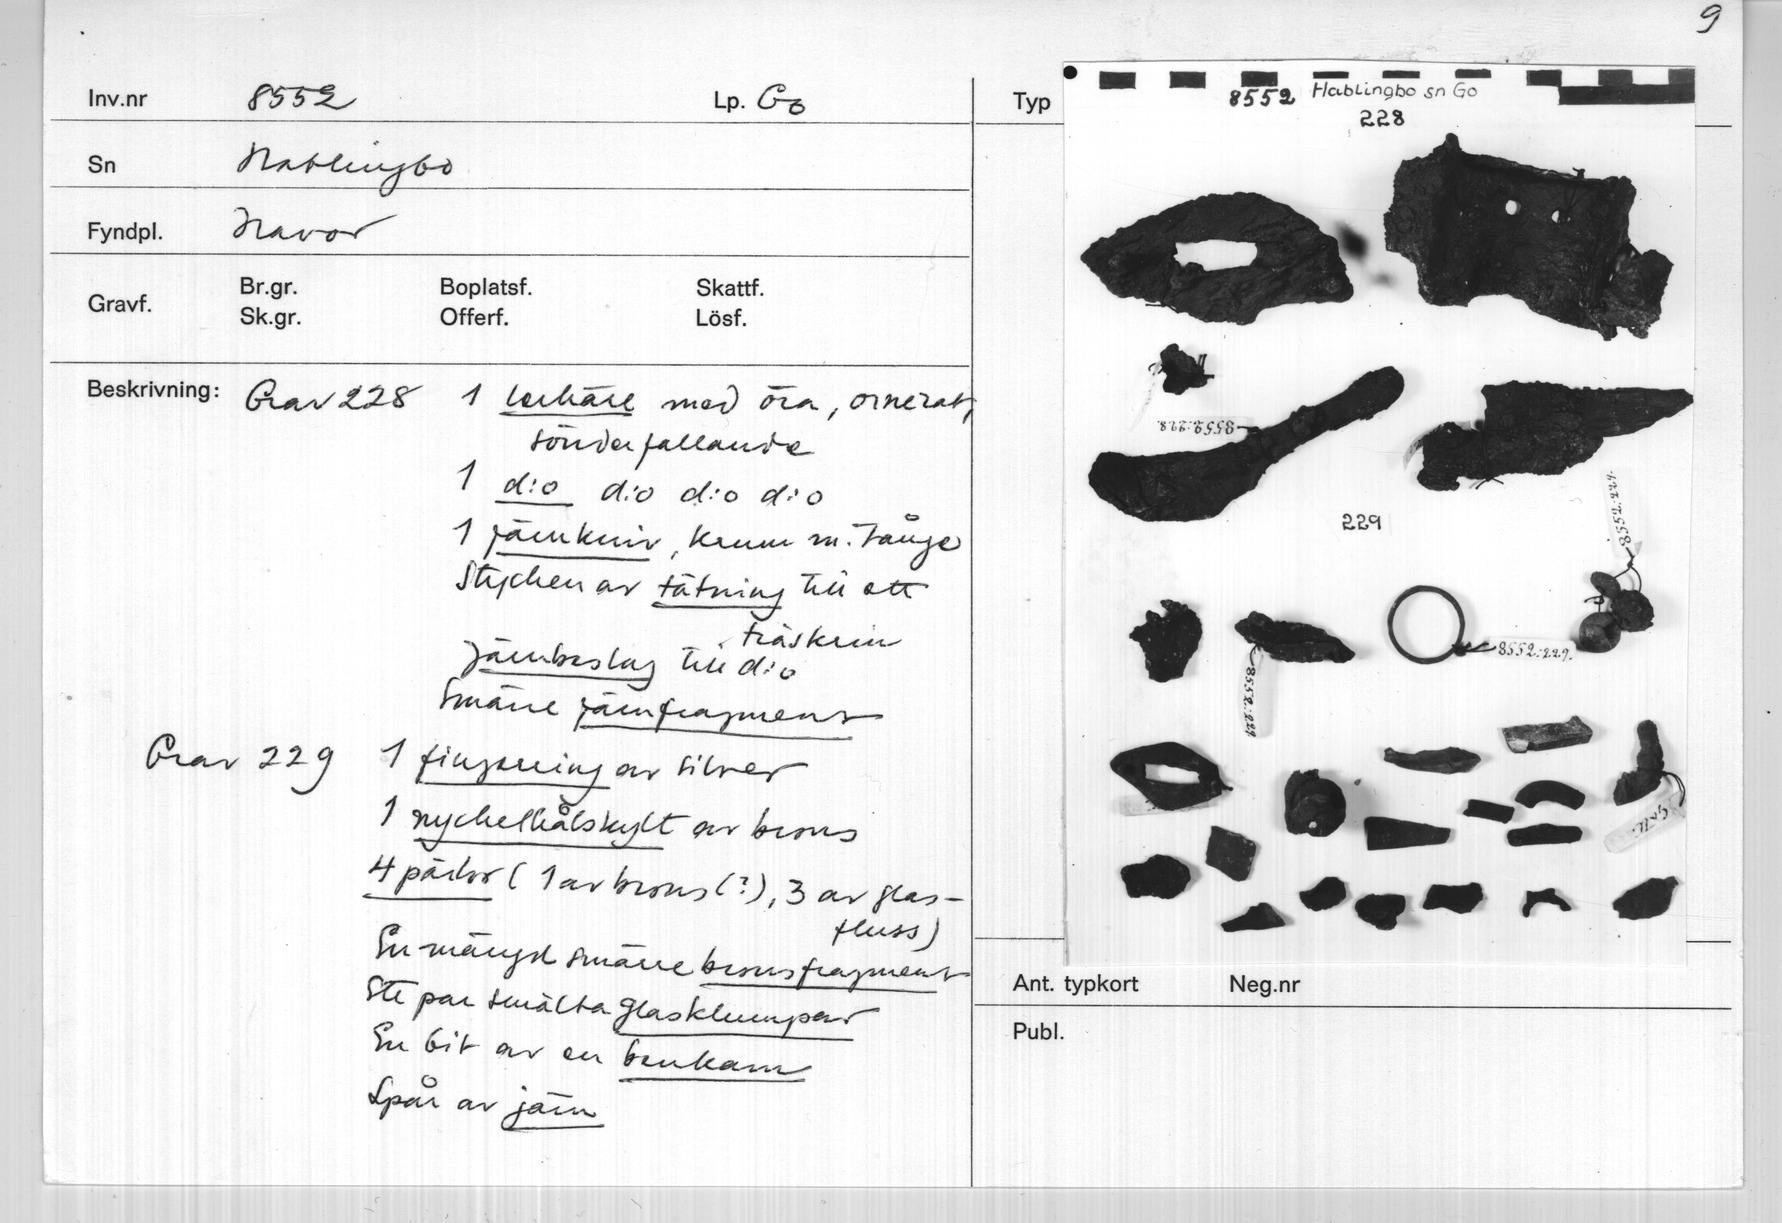 9
Inv.nr 8552 Lp. Go
Sn Hablingbo
Fyndpl. Havor
Gravf. Br.gr. Boplatsf. Skattf.
Sk.gr. Offerf. Lösf.
Beskrivning: Grav 228 1 lerkärl med öra, ornerat,
sönderfallande
1 d:o d:o d:o d:o
1 järnkniv, krum m. tånge
Stycken av tätning till ett
träskrin
Järnbeslag till d:o
Smärre järnfragment
Grav 229 1 fingerring av silver
1 nyckelhålskylt av brons
4 pärlor (1 av brons (?), 3 av glas-
fluss)
En mängd smärre bronsfragment
Ett par smälta glasklumpar
En bit av en benkam
Spår av järn
Typ
8552 Hablingbo sn Go
228
8552:228.
229
8552:229.
8552:229.
8552:229
Ant. typkort Neg.nr
Publ.